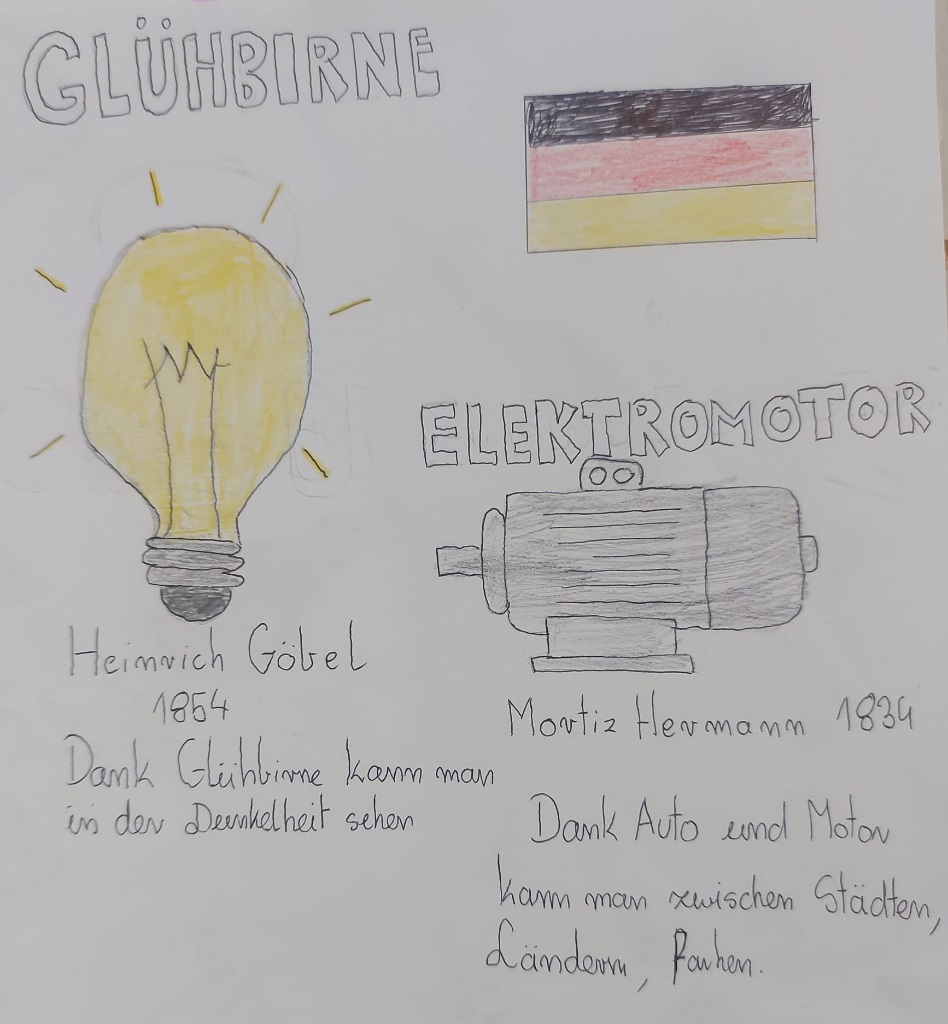 GLÜHBIRNE
ELEKTROMOTOR
Heinrich Göbel
1854
Dank Glühbirne kann man
in der Dunkelheit sehen
Mortiz Hermann 1834
Dank Auto und Motor
kann man zwischen Städten,
Ländern, Fahren.